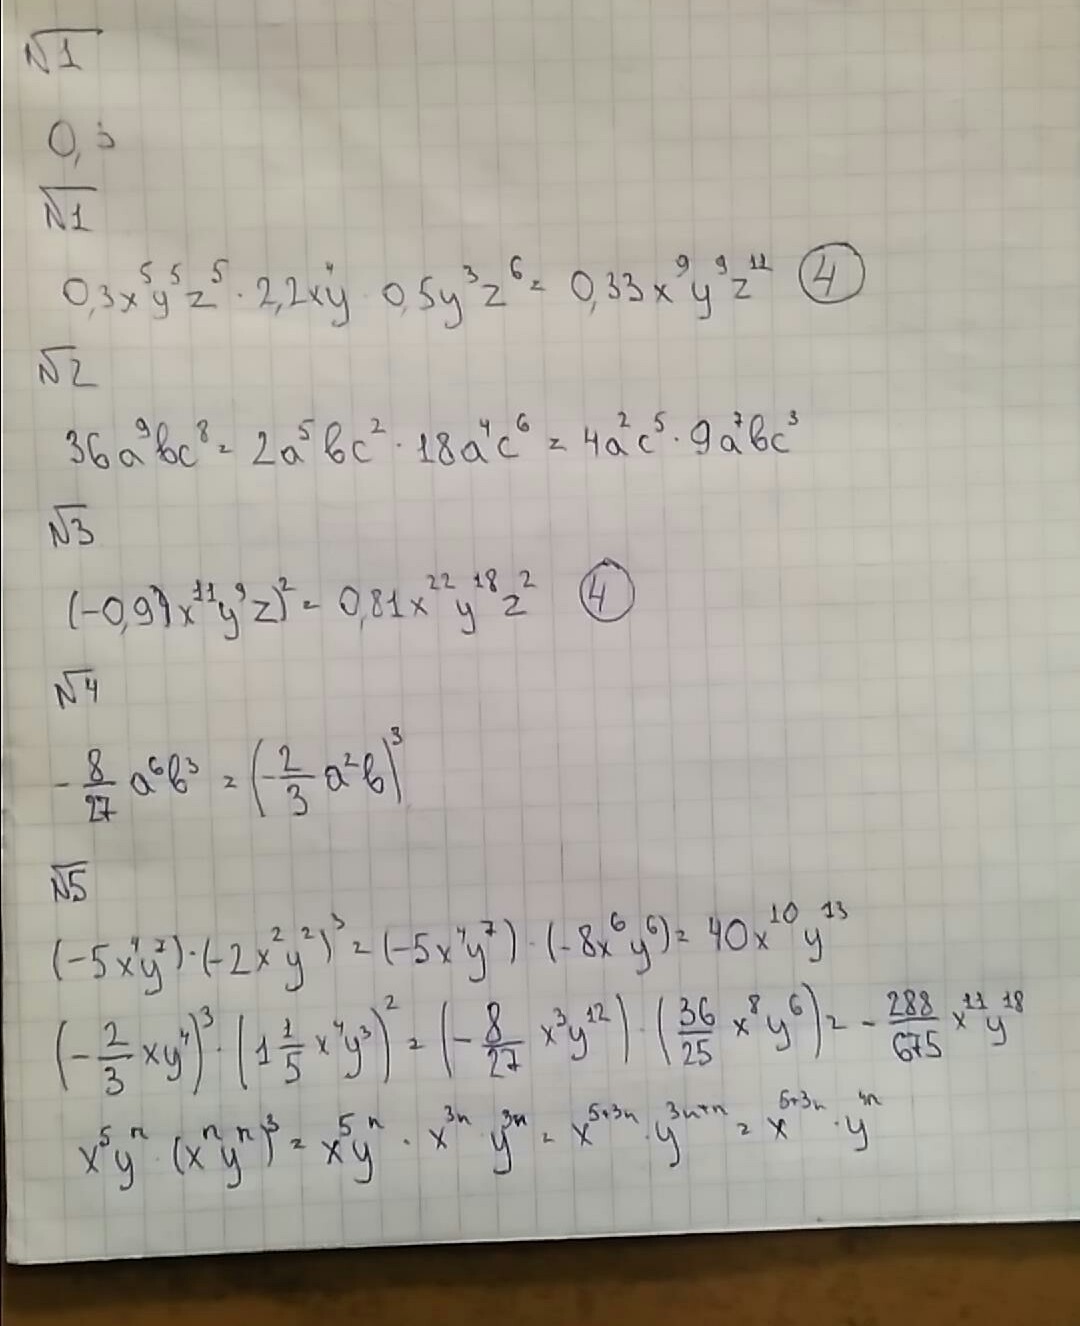 №1
0,3
№1
0,3x⁵y⁵z⁵ · 2,2xy⁴ · 0,5y³z⁶ = 0,33x⁹y⁹z¹¹ ④
№2
36a⁹bc⁸ = 2a⁵bc² · 18a⁴c⁶ = 4a²c⁵ · 9a⁷bc³
№3
(-0,9x¹¹y⁹z)² = 0,81x²²y¹⁸z² ④
№4
-8/27 a⁶b³ = (-2/3 a²b)³
№5
(-5x⁴y⁷)·(-2x²y²)³ = (-5x⁴y⁷)·(-8x⁶y⁶) = 40x¹⁰y¹³
(-2/3 xy⁴)³ · (1 1/5 x⁴y³)² = (-8/27 x³y¹²)·(36/25 x⁸y⁶) = -288/675 x¹¹y¹⁸
x⁵yⁿ · (xⁿyⁿ)³ = x⁵yⁿ · x³ⁿ y³ⁿ = x⁵⁺³ⁿ · y³ⁿ⁺ⁿ = x⁵⁺³ⁿ · y⁴ⁿ